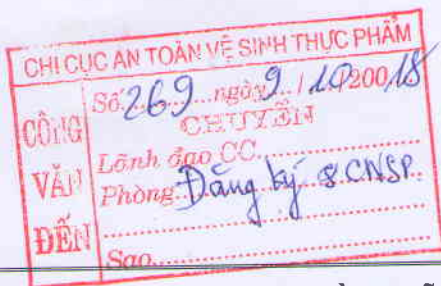 CHI CỤC AN TOÀN VỆ SINH THỰC PHẨM
CÔNG VĂN ĐẾN
Số: 269 ngày 9 / 10/20018
CHUYỂN
Lãnh đạo CC
Phòng: Đăng ký & CNSP
Sao